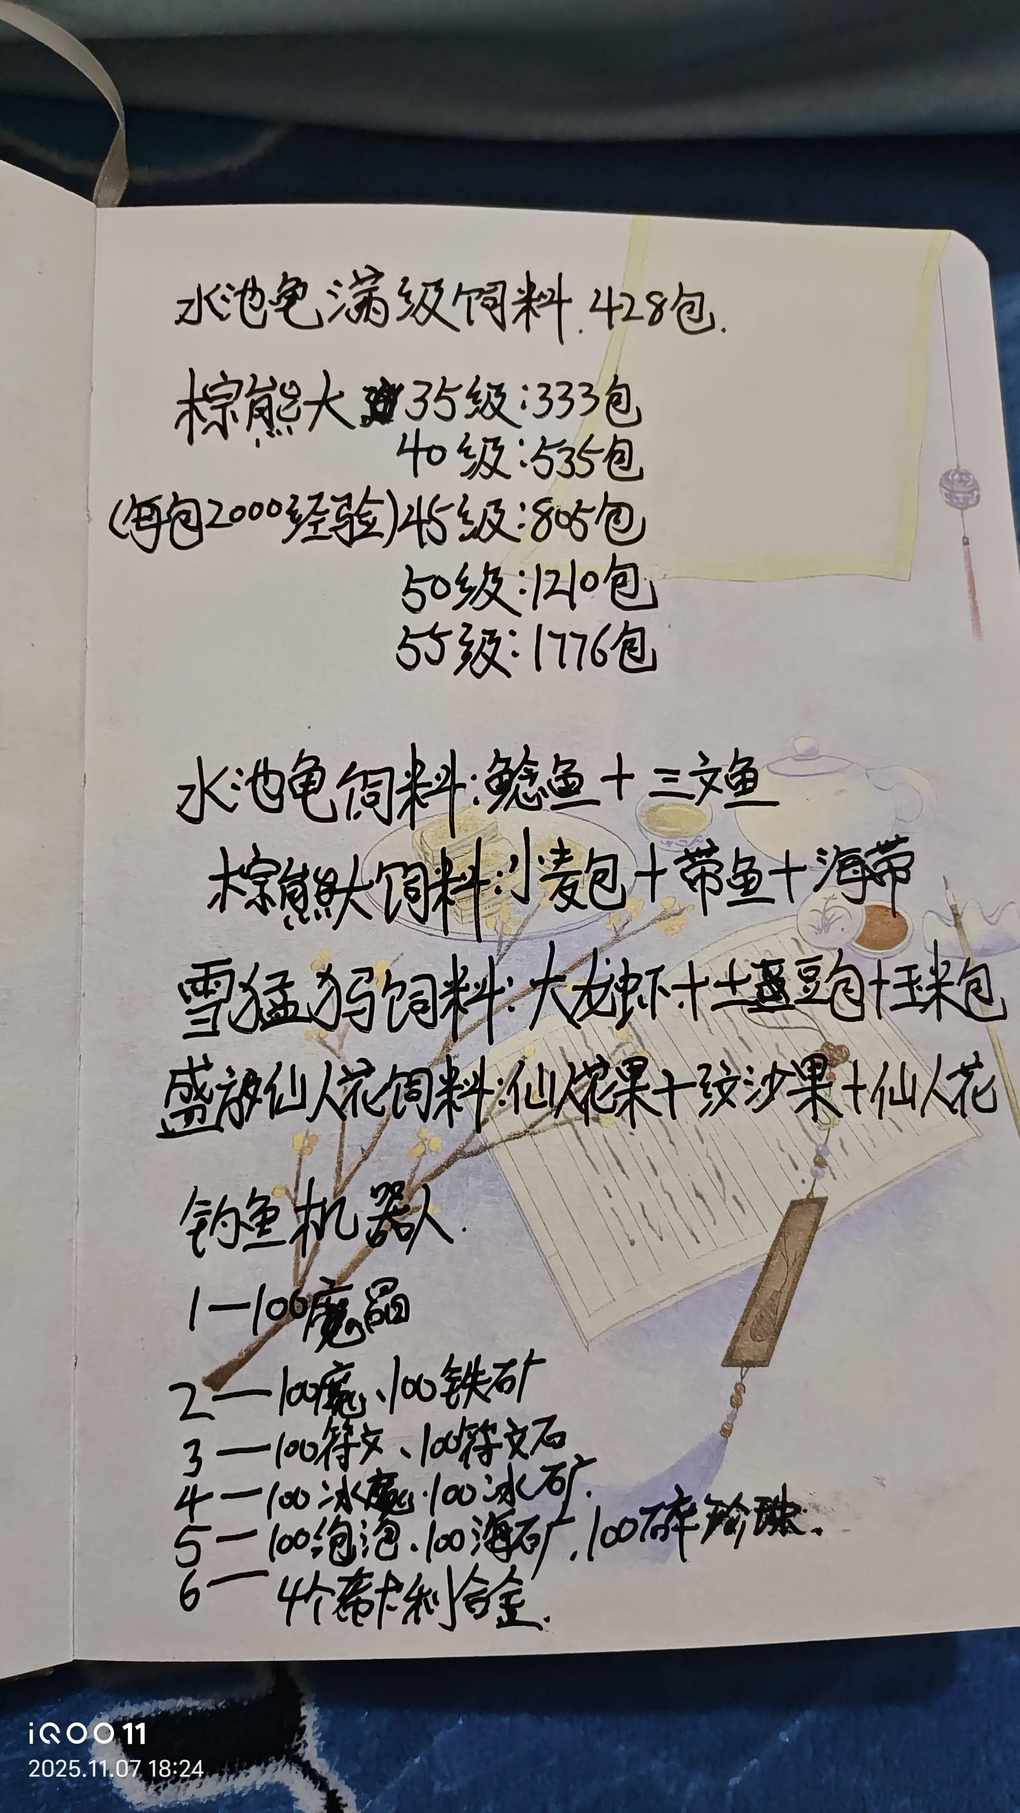 水池龟满级饲料.428包.
棕熊大 35级:333包
40级:535包
(每包2000经验)45级:805包
50级:1210包
55级:1776包
水池龟饲料:鲶鱼+三文鱼
棕熊大饲料:小麦包+带鱼+海带
雪猛犸饲料:大龙虾+土豆包+玉米包
盛放仙人花饲料:仙人花果+纹沙果+仙人花
钓鱼机器人.
1—100魔晶
2—100魔、100铁矿
3—100符文、100符文石
4—100冰魔.100冰矿.
5—100泡泡.100海矿.100碎珍珠.
6—4个蒂卡利合金.
iQOO 11
2025.11.07 18:24